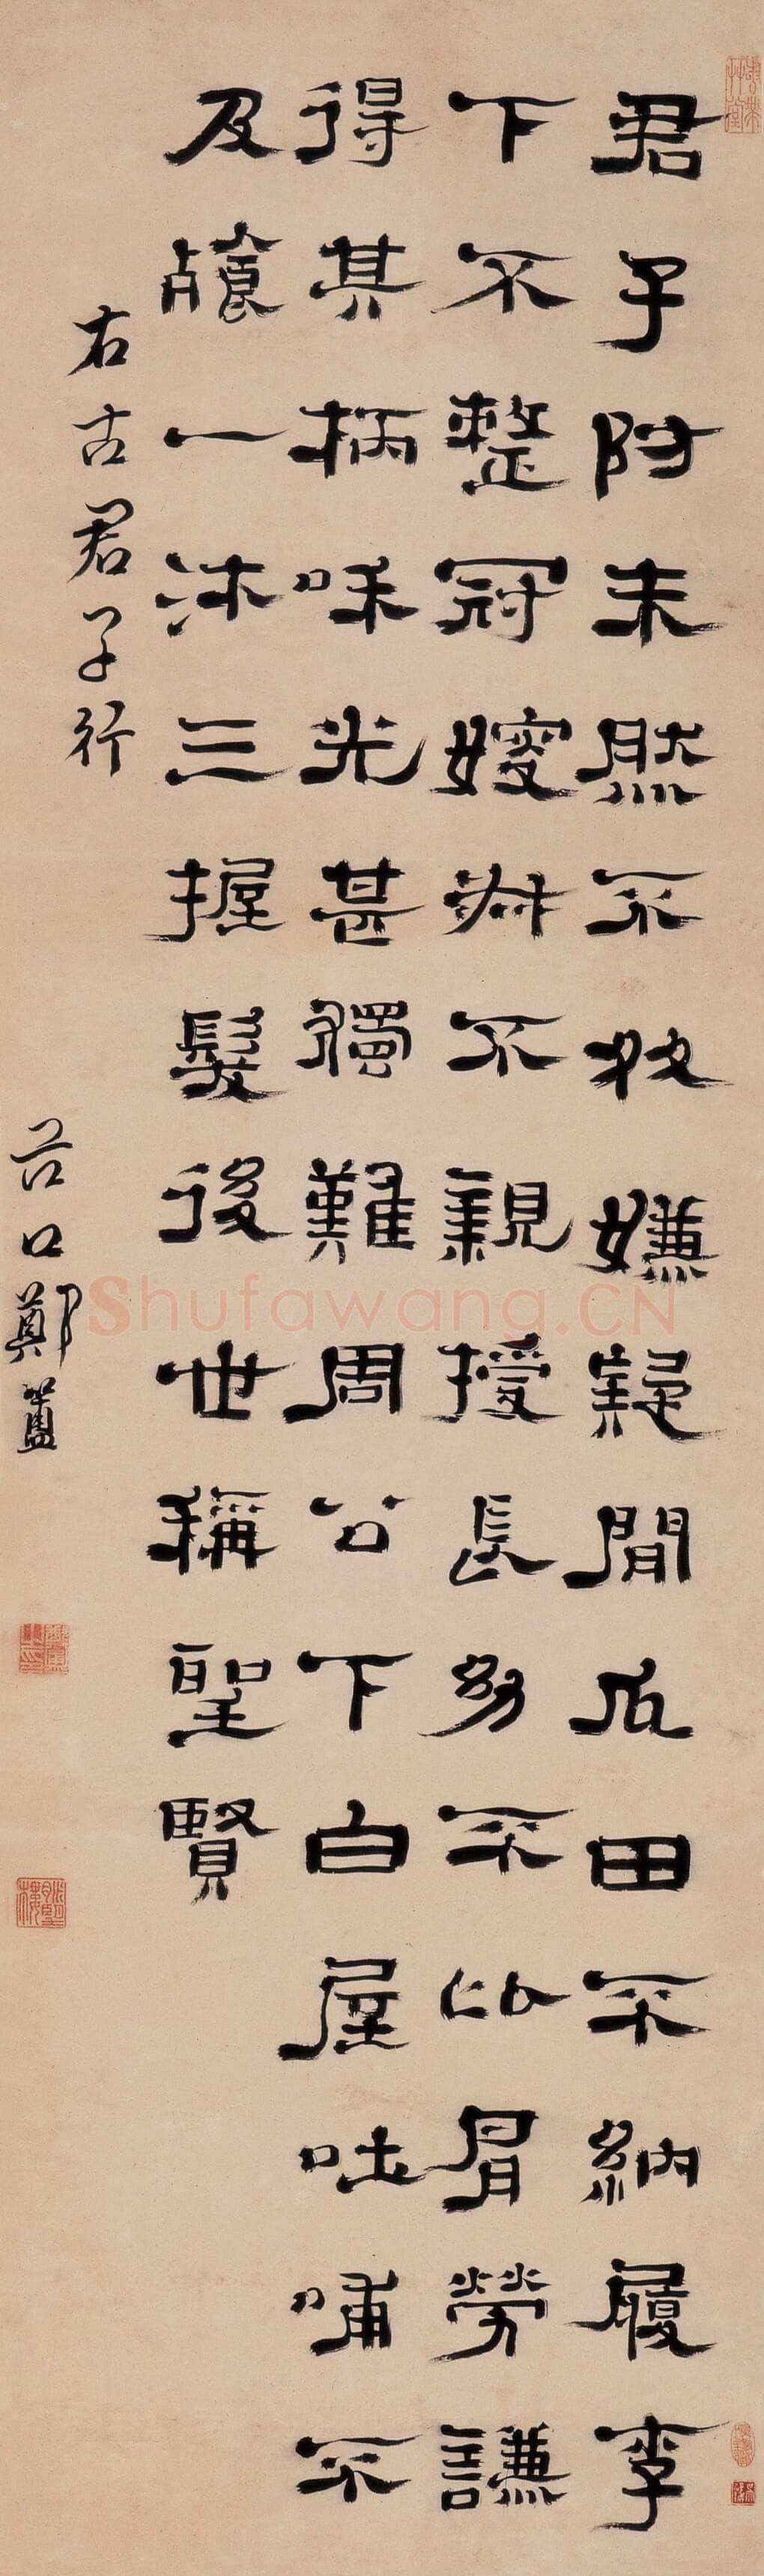 君子防未然不嫌疑間瓜田不納履李
下不整冠嫂叔不親授長幼不比肩勞謙
得其柄咊光甚獨難周公下白屋吐哺不
及餐一沐三握髮後世稱聖賢
右古君子行
谷口鄭簠
Shufawang.CN